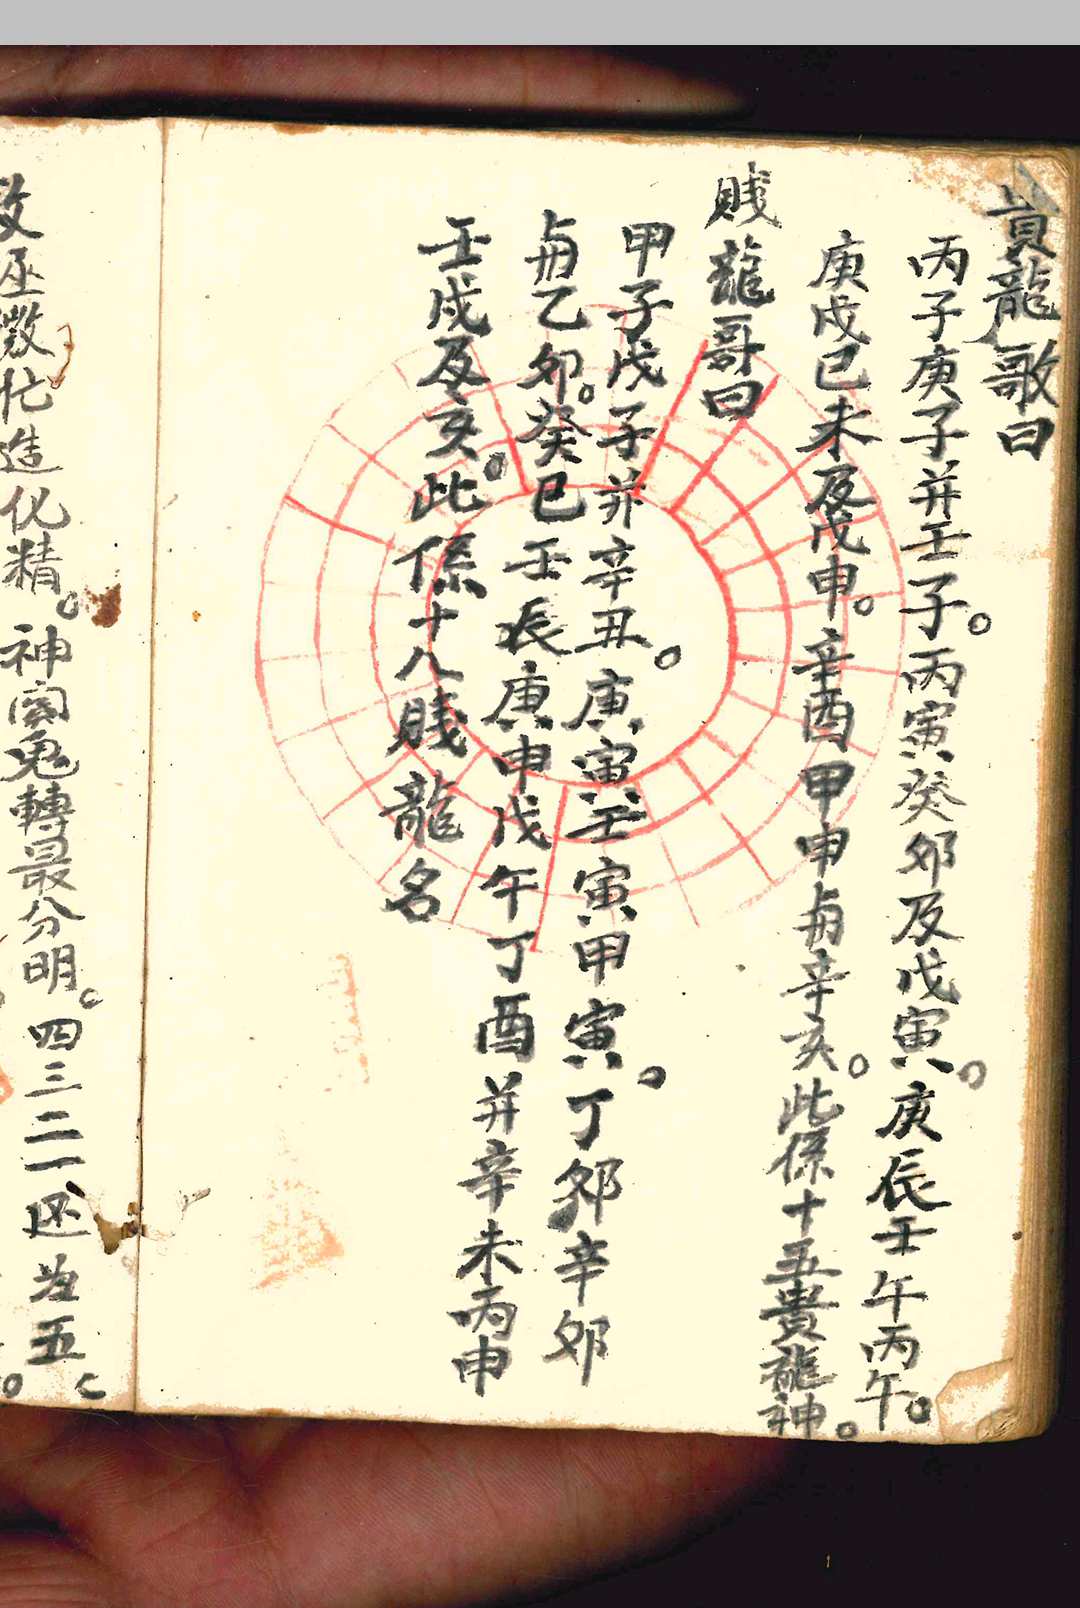 貴龍歌曰
丙子庚子并壬子。丙寅癸卯及戊寅。庚辰壬午丙午。
庚戌已未及戊申。辛酉甲申與辛亥。此係十五貴龍神。
賎龍哥曰
甲子戊子并辛丑。庚寅壬寅甲寅。丁卯辛卯
與乙卯。癸巳壬辰庚申戊午丁酉并辛未丙申
壬戌及亥。此係十八賎龍名
微忙造化精。神闵鬼轉最分明。四三二一还為五。